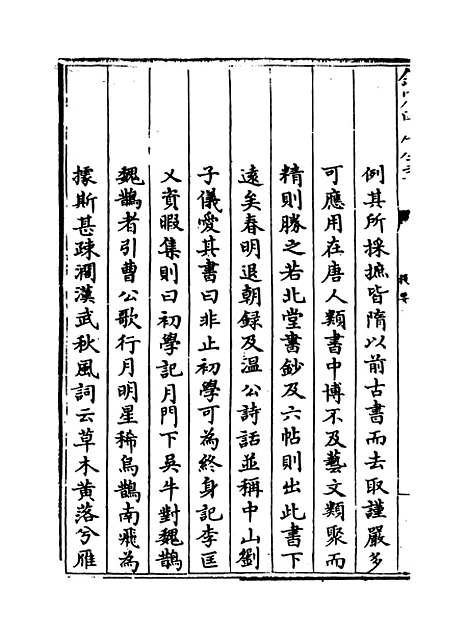 例其所採摭皆隋以前古書而去取謹嚴多
可應用在唐人類書中博不及藝文類聚而
精則勝之若北堂書鈔及六帖則出此書下
遠矣春明退朝録及温公詩話並稱中山劉
子儀愛其書曰非止初學可為終身記李匡
乂資暇集則曰初學記月門下吳牛對魏鵲
魏鵲者引曹公歌行月明星稀烏鵲南飛為
據斯甚疎濶漢武秋風詞云草木黄落兮雁
提要